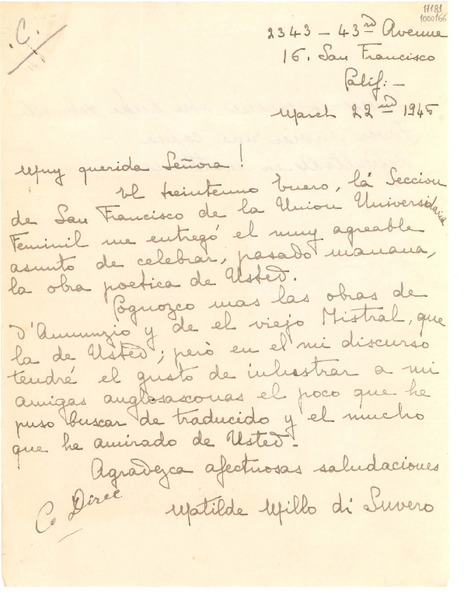 17181
1000166
.C.
2343 - 43rd Avenue
16. San Francisco
Calif: -
March 22nd 1945
Muy querida Señora!
El treintenno buero, la Seccion
de San Francisco de la Union Universitaria
Feminil me entregó el muy agreable
asunto de celebrar, pasado manana,
la obra poetica de Usted.
Cognozco mas las obras de
D'Annunzio y de el viejo Mistral, que
la de Usted; però en el mi discurso
tendré el gusto de inlustrar a mi
amigas anglosasconas el poco que he
puso buscar de traducido y el mucho
que he amirado de Usted.
Agradezca afectuosas saludaciones
Matilde Millo di Suvero
C Direc